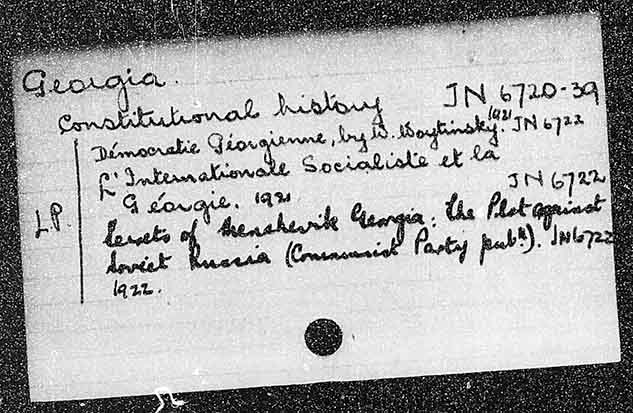 Georgia.
Constitutional history JN 6720-39
Démocratie Géorgienne, by W. Woytinsky. 1921 JN 6722
L'Internationale Socialiste et la
Géorgie. 1921 JN 6722
L.P.
Secrets of Menshevik Georgia: The Plot against
Soviet Russia (Communist Party pubn). JN 6722
1922.